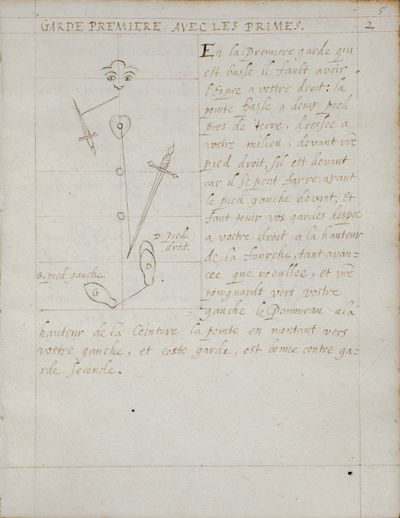 5
GARDE PREMIERE AVEC LES PRIMES.
2
En la Premiere garde qui
est basse il fault avoir
l'Espee a vostre droit: la
pointe basse a deux pied
pres de terre, dressee a
vostre milieu, devant vrē
pied droit, s'il est devant
car il se peut faire ayant
le pied gauche devant, Et
faut tenir vos gardes despee
a vostre droit a la hauteur
de la fourche, tant avan-
cee que recullee, et vrē
poingnardt vers vostre
gauche le Pommeau a la
hauteur de la Ceinture la pointe en montant vers
vostre gauche, et ceste garde, est bonne contre ga-
rde seconde.
D. pied
droit.
D
G. pied gauche
G